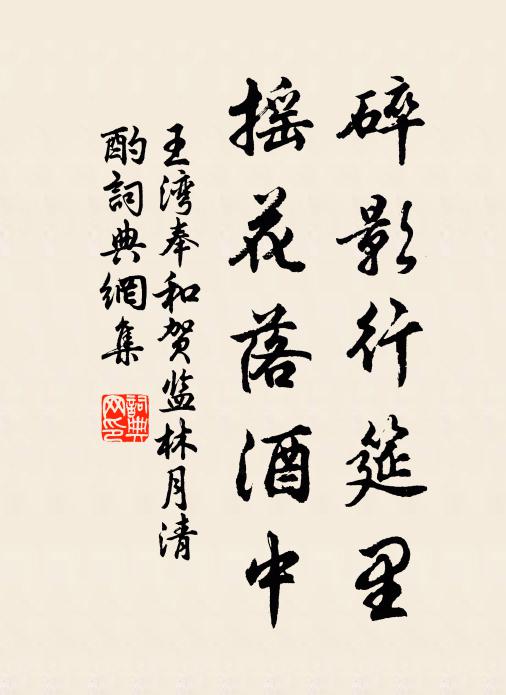 碎影行筵里
摇花落酒中
王湾奉和贺监林月清
酌詞典網集
詞典网印